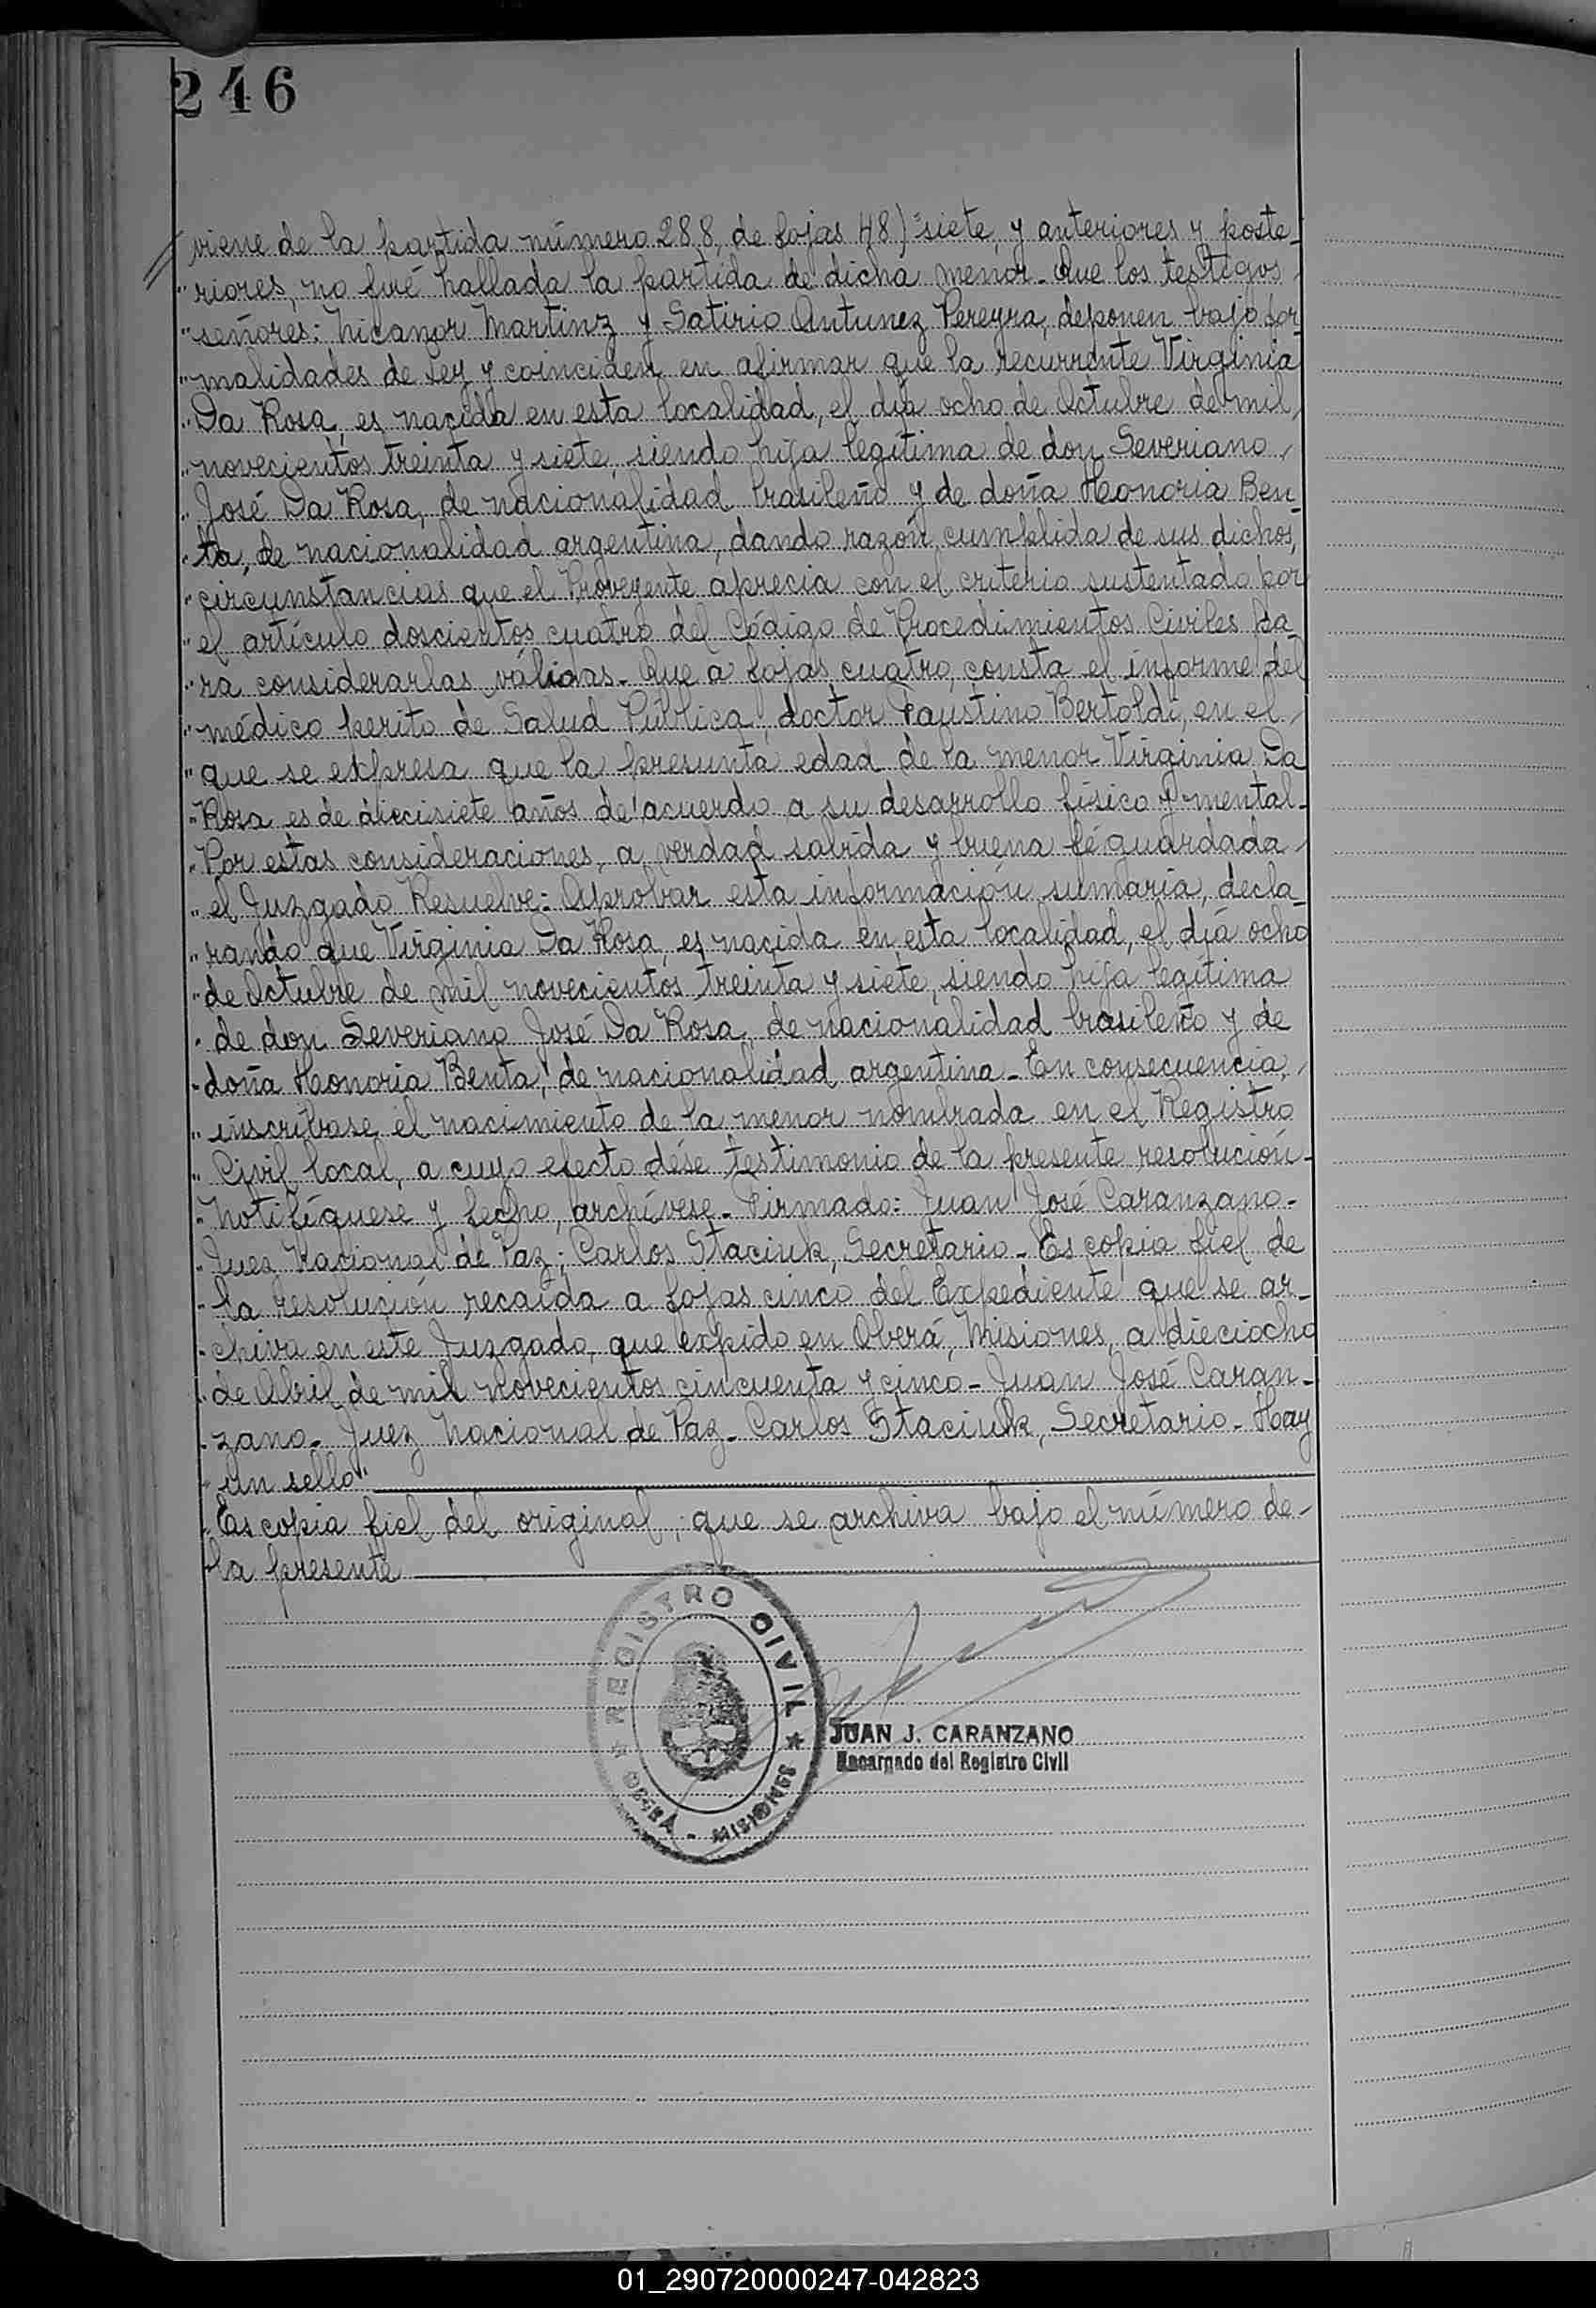 246
viene de la partida número 288, de fojas 48) "siete, y anteriores y poste-
"riores, no fué hallada la partida de dicha menor. Que los testigos
"señores: Nicanor Martinz y Satirio Antunez Pereyra, deponen bajo for-
"malidades de Ley y coinciden en afirmar que la recurrente Virginia
"Da Rosa, es nacida en esta localidad, el día ocho de Octubre de mil
"novecientos treinta y siete, siendo hija legítima de don Severiano
"José Da Rosa, de nacionalidad brasileño y de doña Honoria Ben-
"ta, de nacionalidad argentina, dando razón cumplida de sus dichos,
"circunstancias que el Proveyente aprecia con el criterio sustentado por
"el artículo doscientos cuatro del Código de Procedimientos Civiles pa-
"ra considerarlas válidas. Que a fojas cuatro, consta el informe del
"médico perito de Salud Pública, doctor Faustino Bertoldi, en el
"que se expresa que la presunta edad de la menor Virginia Da
"Rosa es de diecisiete años de acuerdo a su desarrollo físico y mental.
"Por estas consideraciones, a verdad sabida y buena fé guardada
"el Juzgado Resuelve: Aprobar esta información sumaria, decla-
"rando que Virginia Da Rosa, es nacida en esta localidad, el día ocho
"de Octubre de mil novecientos treinta y siete, siendo hija legítima
"de don Severiano José Da Rosa, de nacionalidad brasileño y de
"doña Honoria Benta, de nacionalidad argentina. En consecuencia,
"inscríbase el nacimiento de la menor nombrada en el Registro
"Civil local, a cuyo efecto dése testimonio de la presente resolución.
"Notifíquese y fecho, archívese. Firmado: Juan José Caranzano.
"Juez Nacional de Paz; Carlos Staciuk, Secretario. Es copia fiel de
"la resolución recaída a fojas cinco del Expediente que se ar-
"chiva en este Juzgado, que expido en Oberá, Misiones, a dieciocho
"de Abril de mil novecientos cincuenta y cinco. Juan José Caran-
"zano. Juez Nacional de Paz. Carlos Staciuk, Secretario. Hay
"un sello"
Es copia fiel del original; que se archiva bajo el número de
la presente
REGISTRO CIVIL
OBERA - MISIONES
JUAN J. CARANZANO
Encargado del Registro Civil
01_290720000247-042823